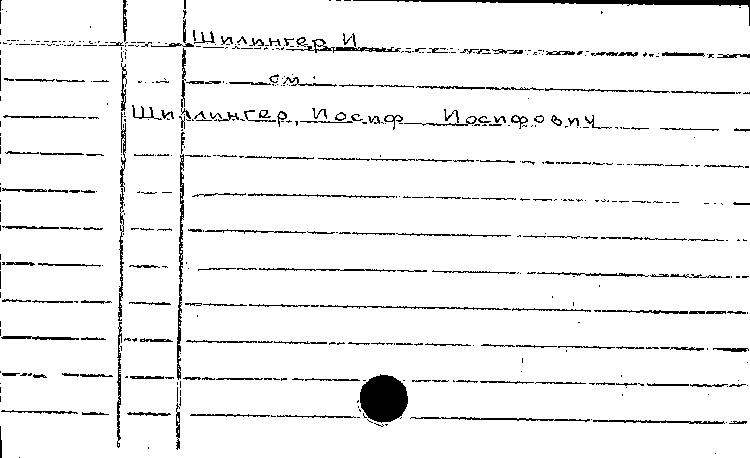 Шилингер, И
см:
Шиллингер, Иосиф Иосифович